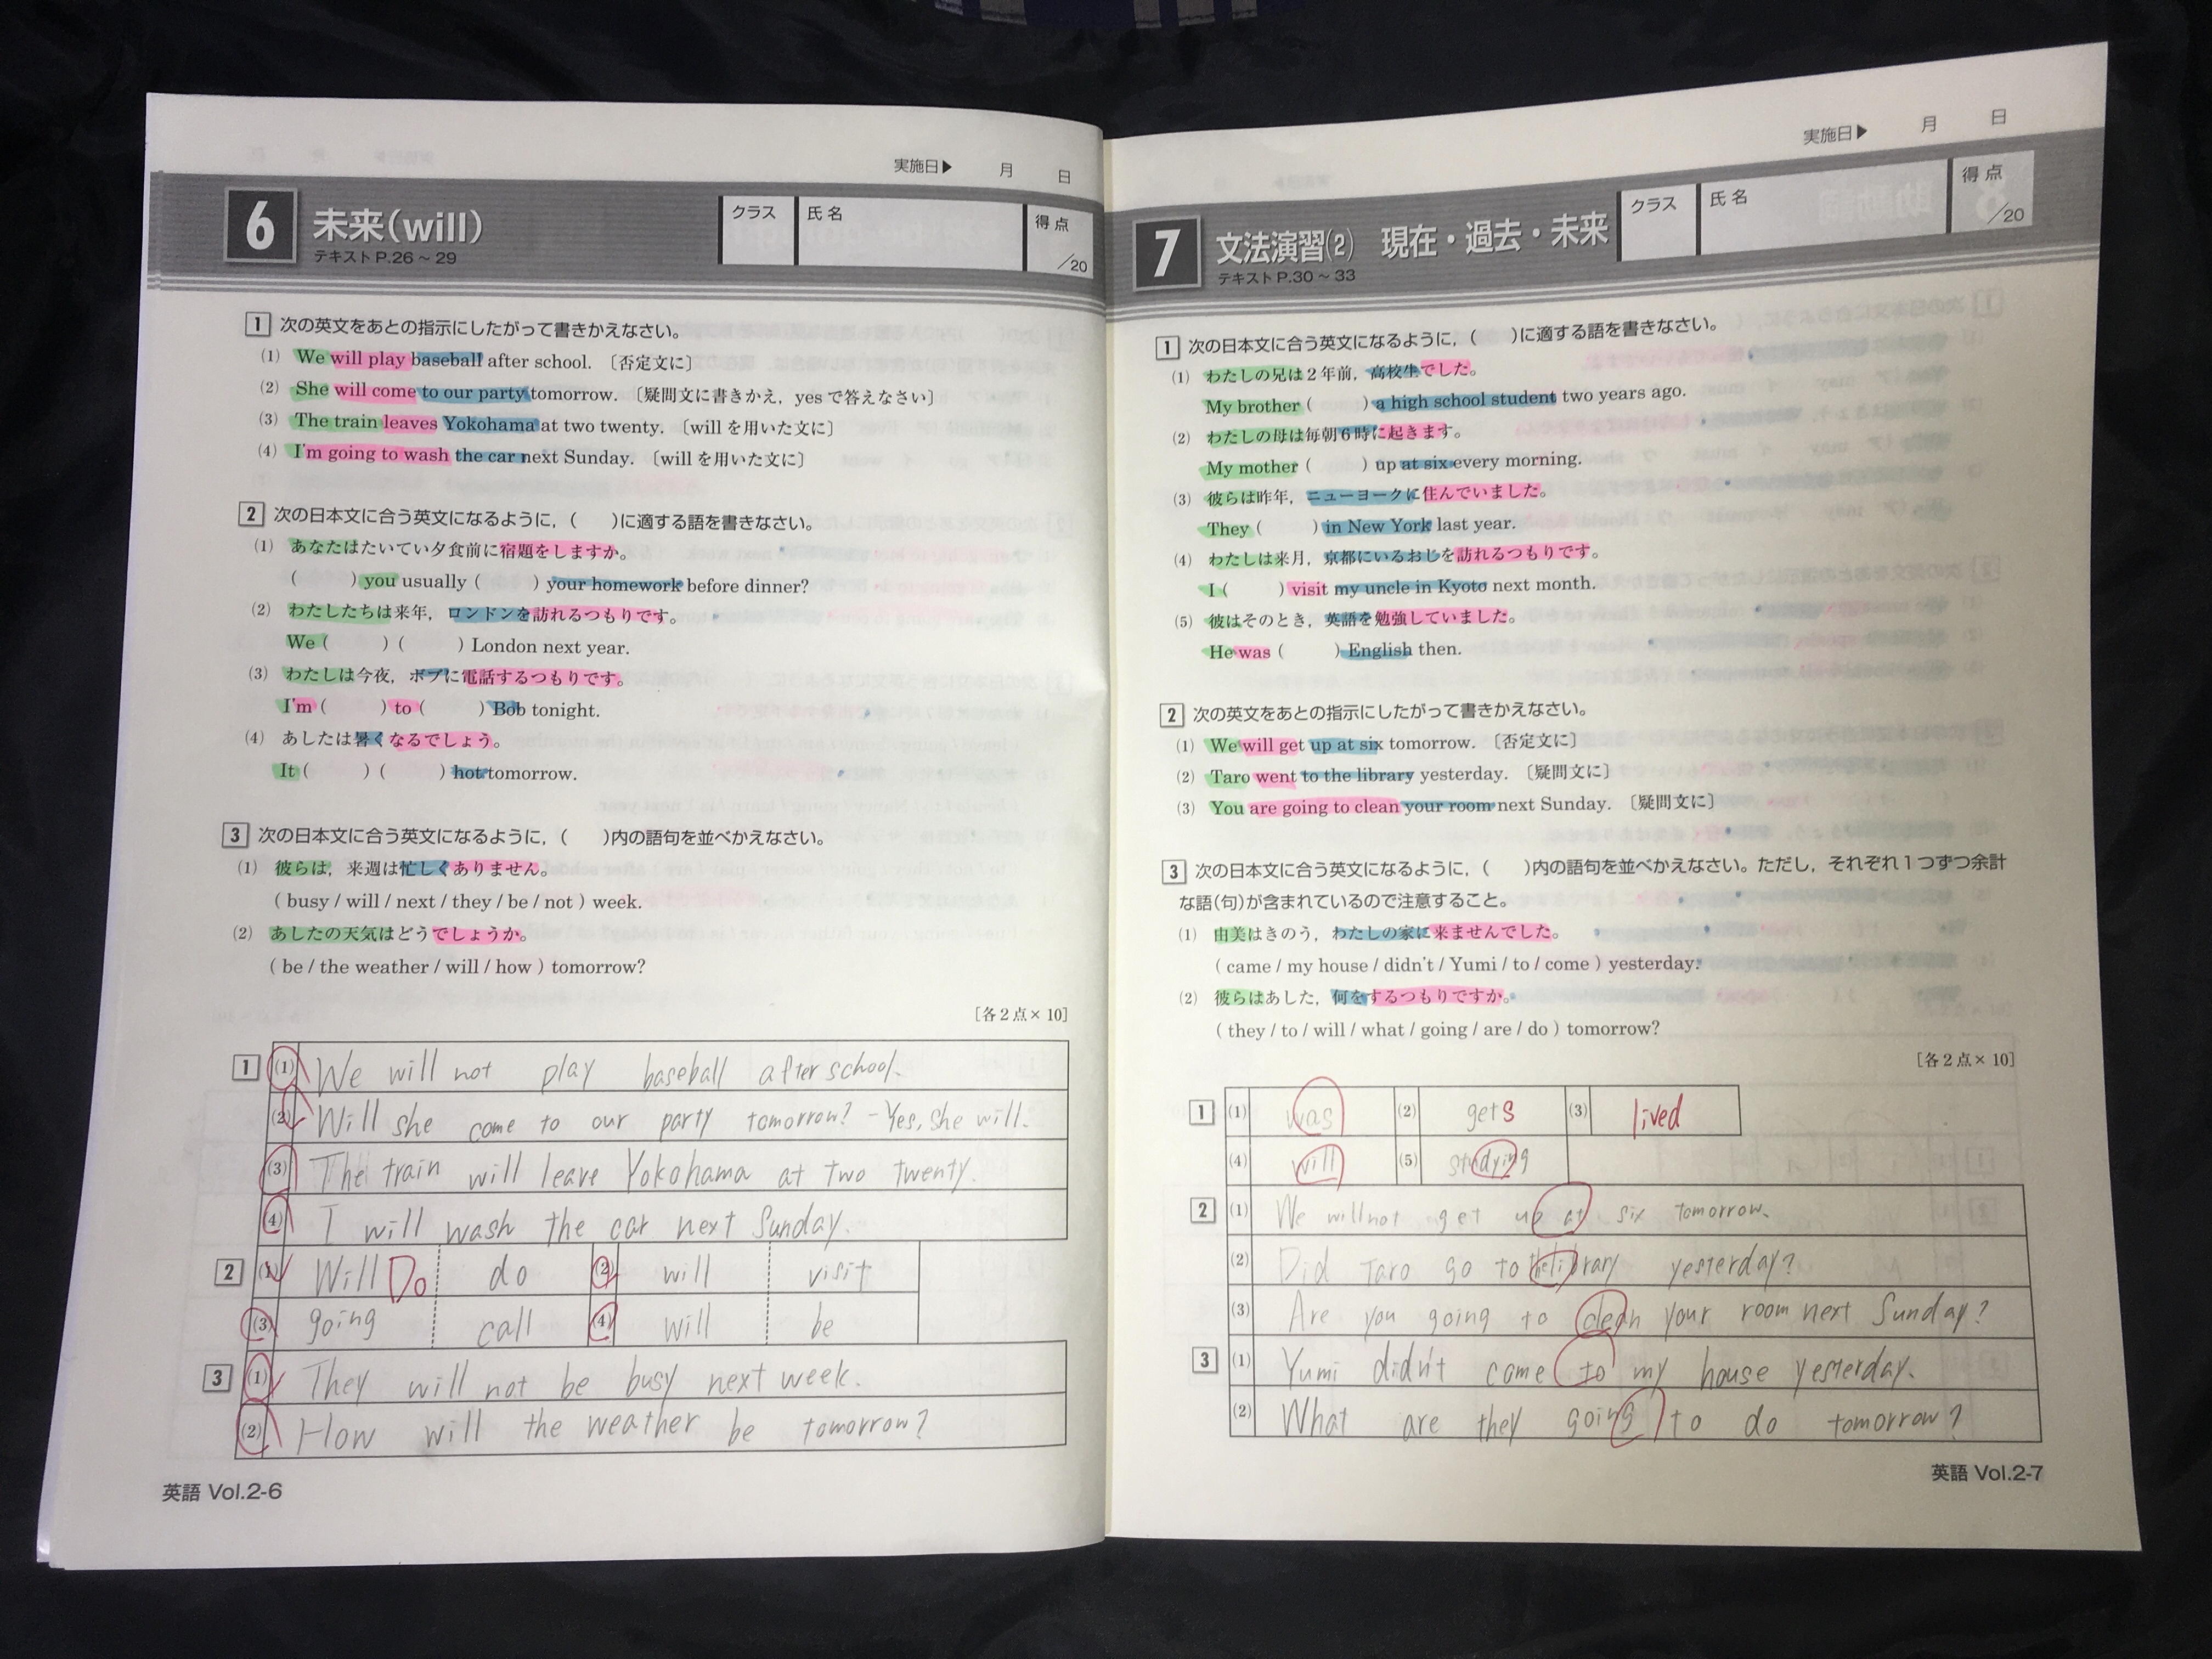 実施日▶ 月 日
6 未来(will)
テキストP.26～29
クラス 氏名 得点 /20
1 次の英文をあとの指示にしたがって書きかえなさい。
(1) We will play baseball after school. 〔否定文に〕
(2) She will come to our party tomorrow. 〔疑問文に書きかえ，yesで答えなさい〕
(3) The train leaves Yokohama at two twenty. 〔willを用いた文に〕
(4) I'm going to wash the car next Sunday. 〔willを用いた文に〕
2 次の日本文に合う英文になるように，( )に適する語を書きなさい。
(1) あなたはたいてい夕食前に宿題をしますか。
( ) you usually ( ) your homework before dinner?
(2) わたしたちは来年，ロンドンを訪れるつもりです。
We ( ) ( ) London next year.
(3) わたしは今夜，ボブに電話するつもりです。
I'm ( ) to ( ) Bob tonight.
(4) あしたは暑くなるでしょう。
It ( ) ( ) hot tomorrow.
3 次の日本文に合う英文になるように，( )内の語句を並べかえなさい。
(1) 彼らは，来週は忙しくありません。
( busy / will / next / they / be / not ) week.
(2) あしたの天気はどうでしょうか。
( be / the weather / will / how ) tomorrow?
[各2点×10]
1 (1) We will not play baseball after school.
(2) Will she come to our party tomorrow? - Yes, she will.
(3) The train will leave Yokohama at two twenty.
(4) I will wash the car next Sunday.
2 (1) Will Do do (2) will visit
(3) going call (4) will be
3 (1) They will not be busy next week.
(2) How will the weather be tomorrow?
英語 Vol.2-6
実施日▶ 月 日
7 文法演習(2) 現在・過去・未来
テキストP.30～33
クラス 氏名 得点 /20
1 次の日本文に合う英文になるように，( )に適する語を書きなさい。
(1) わたしの兄は2年前，高校生でした。
My brother ( ) a high school student two years ago.
(2) わたしの母は毎朝6時に起きます。
My mother ( ) up at six every morning.
(3) 彼らは昨年，ニューヨークに住んでいました。
They ( ) in New York last year.
(4) わたしは来月，京都にいるおじを訪れるつもりです。
I ( ) visit my uncle in Kyoto next month.
(5) 彼はそのとき，英語を勉強していました。
He was ( ) English then.
2 次の英文をあとの指示にしたがって書きかえなさい。
(1) We will get up at six tomorrow. 〔否定文に〕
(2) Taro went to the library yesterday. 〔疑問文に〕
(3) You are going to clean your room next Sunday. 〔疑問文に〕
3 次の日本文に合う英文になるように，( )内の語句を並べかえなさい。ただし，それぞれ1つずつ余計
な語(句)が含まれているので注意すること。
(1) 由美はきのう，わたしの家に来ませんでした。
( came / my house / didn't / Yumi / to / come ) yesterday.
(2) 彼らはあした，何をするつもりですか。
( they / to / will / what / going / are / do ) tomorrow?
[各2点×10]
1 (1) was (2) gets (3) lived
(4) will (5) studying
2 (1) We will not get up at six tomorrow.
(2) Did Taro go to the library yesterday?
(3) Are you going to clean your room next Sunday?
3 (1) Yumi didn't come to my house yesterday.
(2) What are they going to do tomorrow?
英語 Vol.2-7